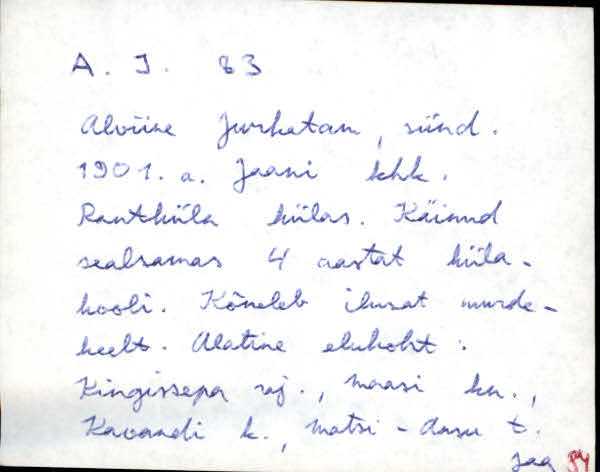 A. J. 83
Alviine Jurkatam, sünd.
1901. a. Jaani khk.
Rantküla külas. Käinud
sealsamas 4 aastat küla-
kooli. Kõneleb ilusat murde-
keelt. Alatine elukoht:
Kingissepa raj., Maasi kn.,
Kavandi k., Matsi - Aasu t.
Jaa